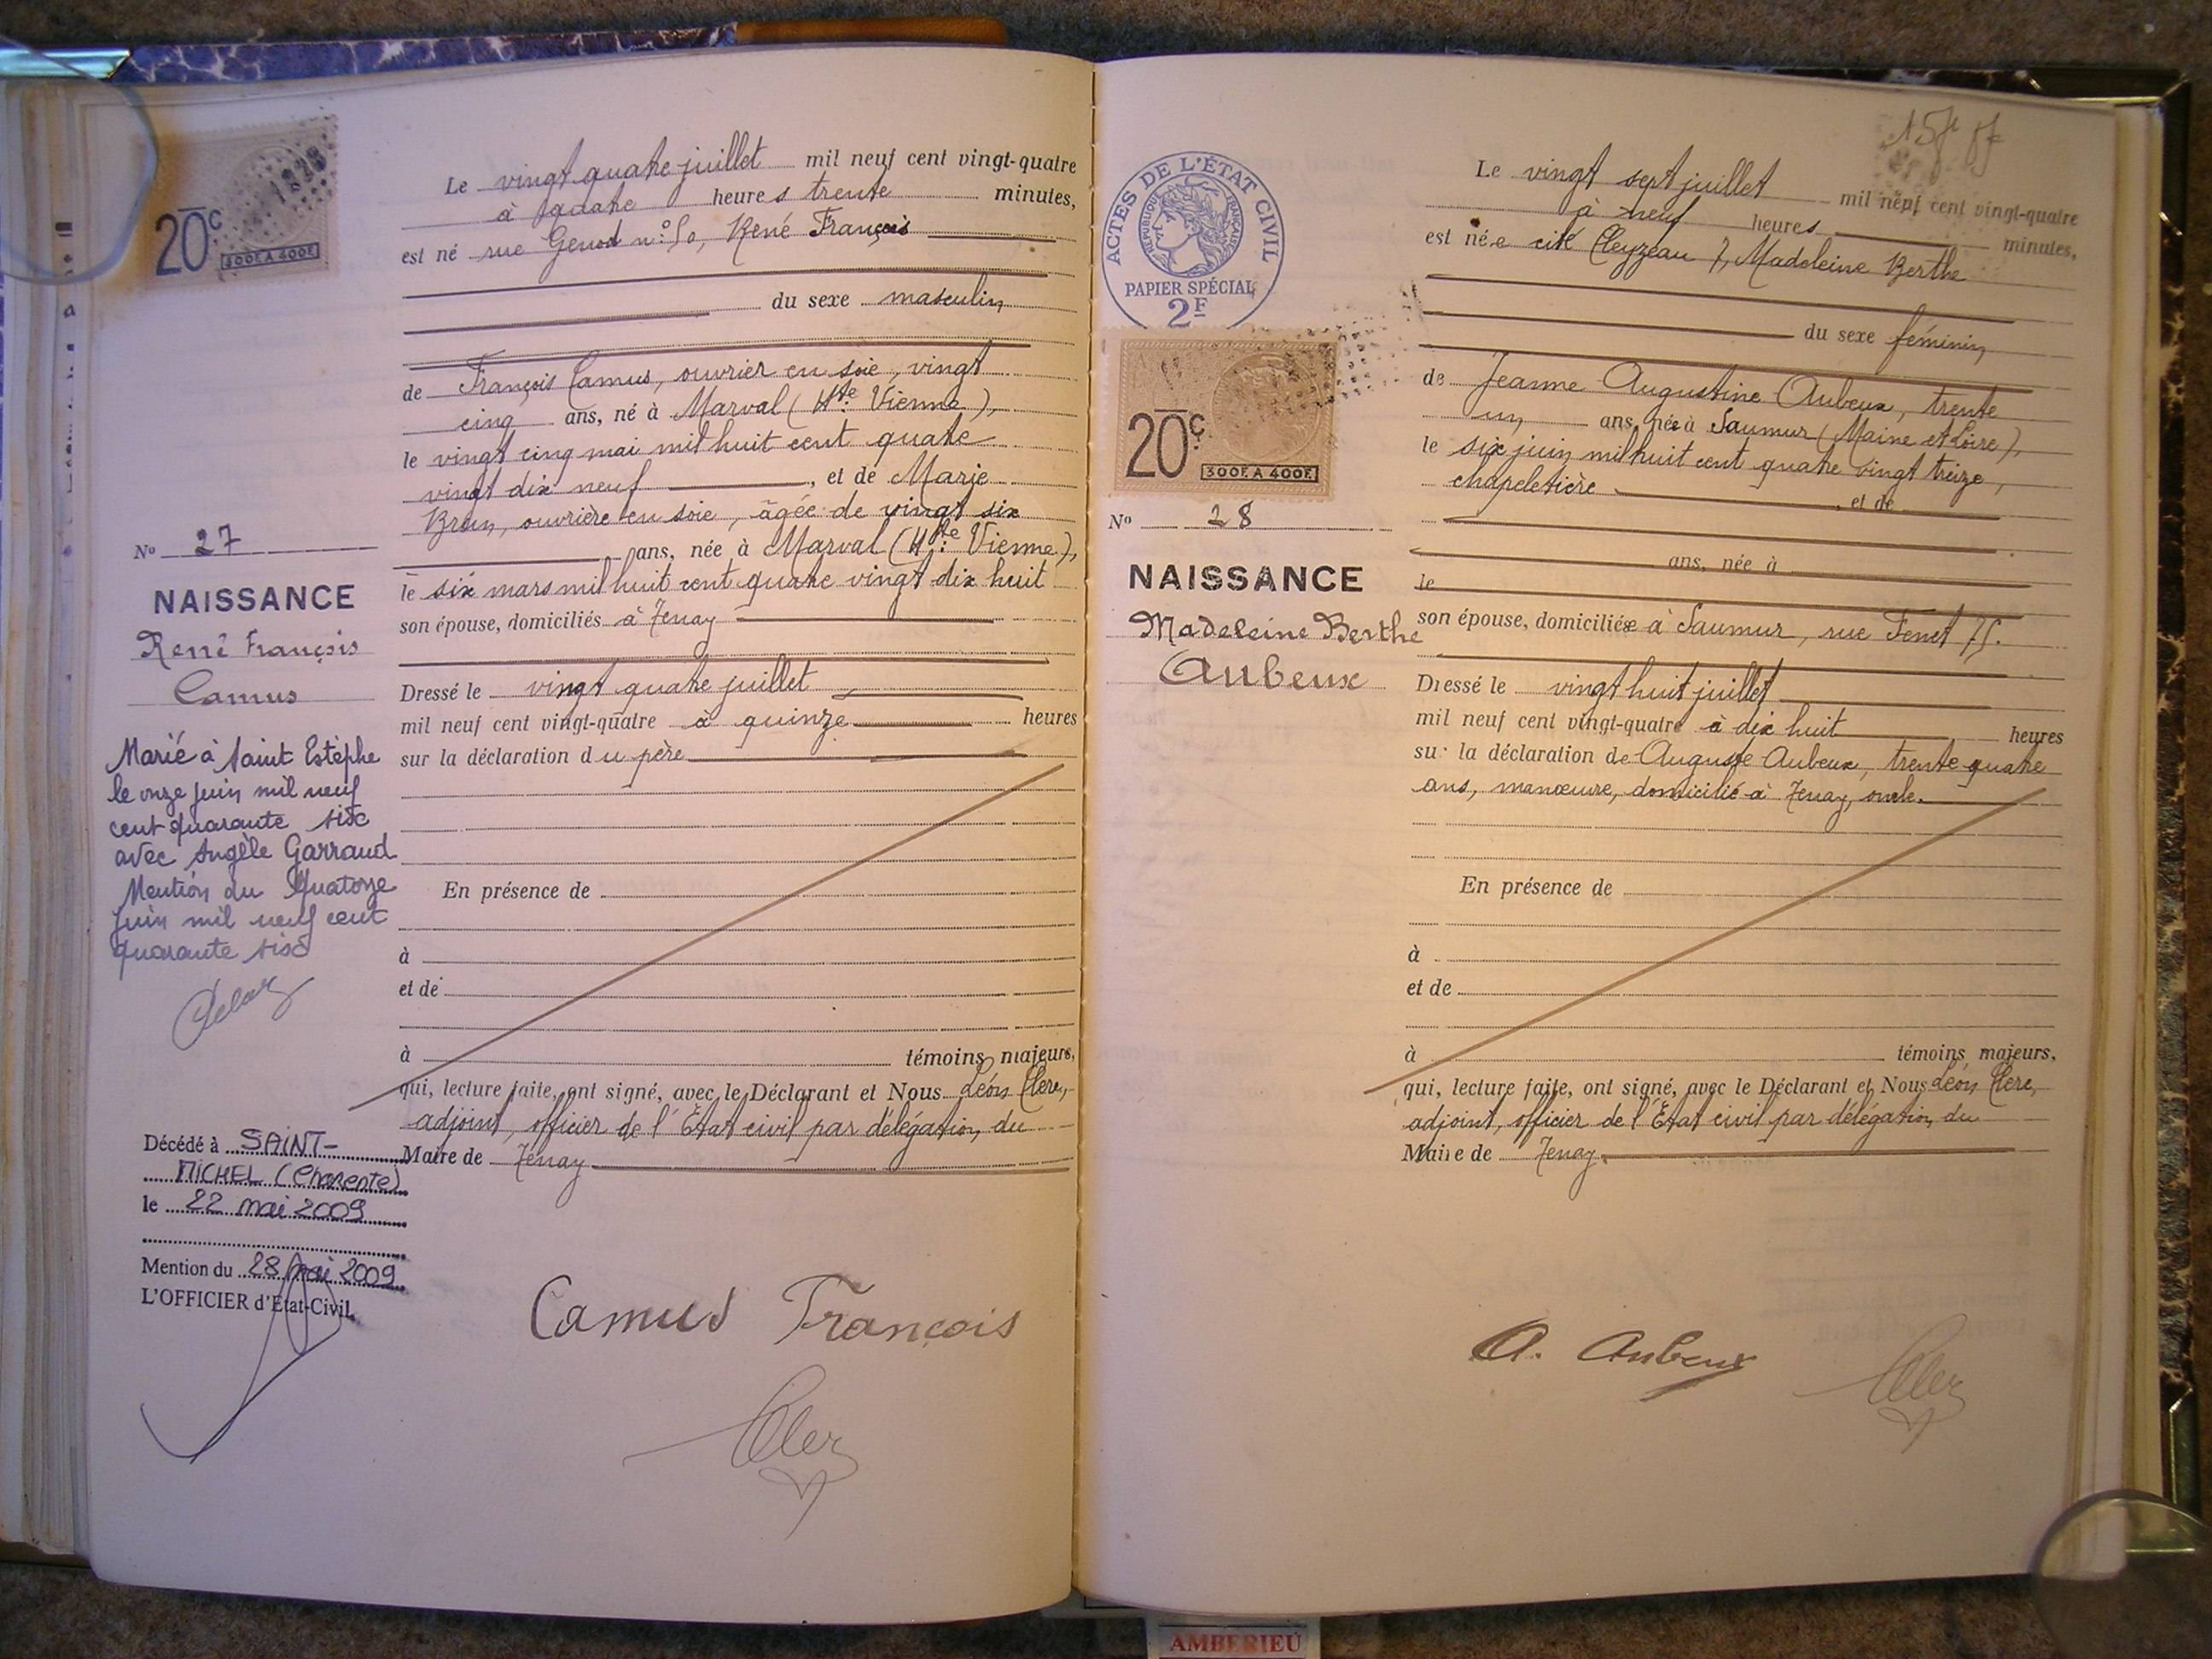 20c
1828
300F. A 400F.
Le vingt quatre juillet mil neuf cent vingt-quatre
à quatre heures trente minutes,
est né rue Genod n° 50, René François
du sexe masculin
de François Camus, ouvrier en soie, vingt
cinq ans, né à Marval (Hte Vienne),
le vingt cinq mai mil huit cent quatre
vingt dix neuf, et de Marie
Brun, ouvrière en soie, âgée de vingt six
ans, née à Marval (Hte Vienne),
le six mars mil huit cent quatre vingt dix huit
son épouse, domiciliés à Tenay
Dressé le vingt quatre juillet
mil neuf cent vingt-quatre à quinze heures
sur la déclaration du père
En présence de
à
et de
à témoins majeurs,
qui, lecture faite, ont signé, avec le Déclarant et Nous Léon Clerc,
adjoint, officier de l'État civil par délégation du
Maire de Tenay
N° 27
NAISSANCE
René François
Camus
Marié à Saint Estèphe
le onze juin mil neuf
cent quarante six
avec Angèle Garraud
Mention du Quatorze
juin mil neuf cent
quarante six
Décédé à SAINT-
MICHEL (Charente)
le 22 mai 2009
Mention du 28 mai 2009
L'OFFICIER d'Etat-Civil,
Camus François
Clerc
ACTES DE L'ÉTAT CIVIL
RÉPUBLIQUE FRANÇAISE
PAPIER SPÉCIAL
2F
20c
300F. A 400F.
N° 28
NAISSANCE
Madeleine Berthe
Aubeux
Le vingt sept juillet mil neuf cent vingt-quatre
à neuf heures minutes,
est née cité Cleyzeau 7, Madeleine Berthe
du sexe féminin
de Jeanne Augustine Aubeux, trente
un ans, née à Saumur (Maine et Loire),
le six juin mil huit cent quatre vingt treize,
chapeletière, et de
ans, née à
le
son épouse, domiciliée à Saumur, rue Fenet 75.
Dressé le vingt huit juillet
mil neuf cent vingt-quatre à dix huit heures
sur la déclaration de Auguste Aubeux, trente quatre
ans, manœuvre, domicilié à Tenay, oncle.
En présence de
à
et de
à témoins majeurs,
qui, lecture faite, ont signé, avec le Déclarant et Nous Léon Clerc,
adjoint, officier de l'État civil par délégation du
Maire de Tenay.
A. Aubeux
Clerc
AMBERIEU